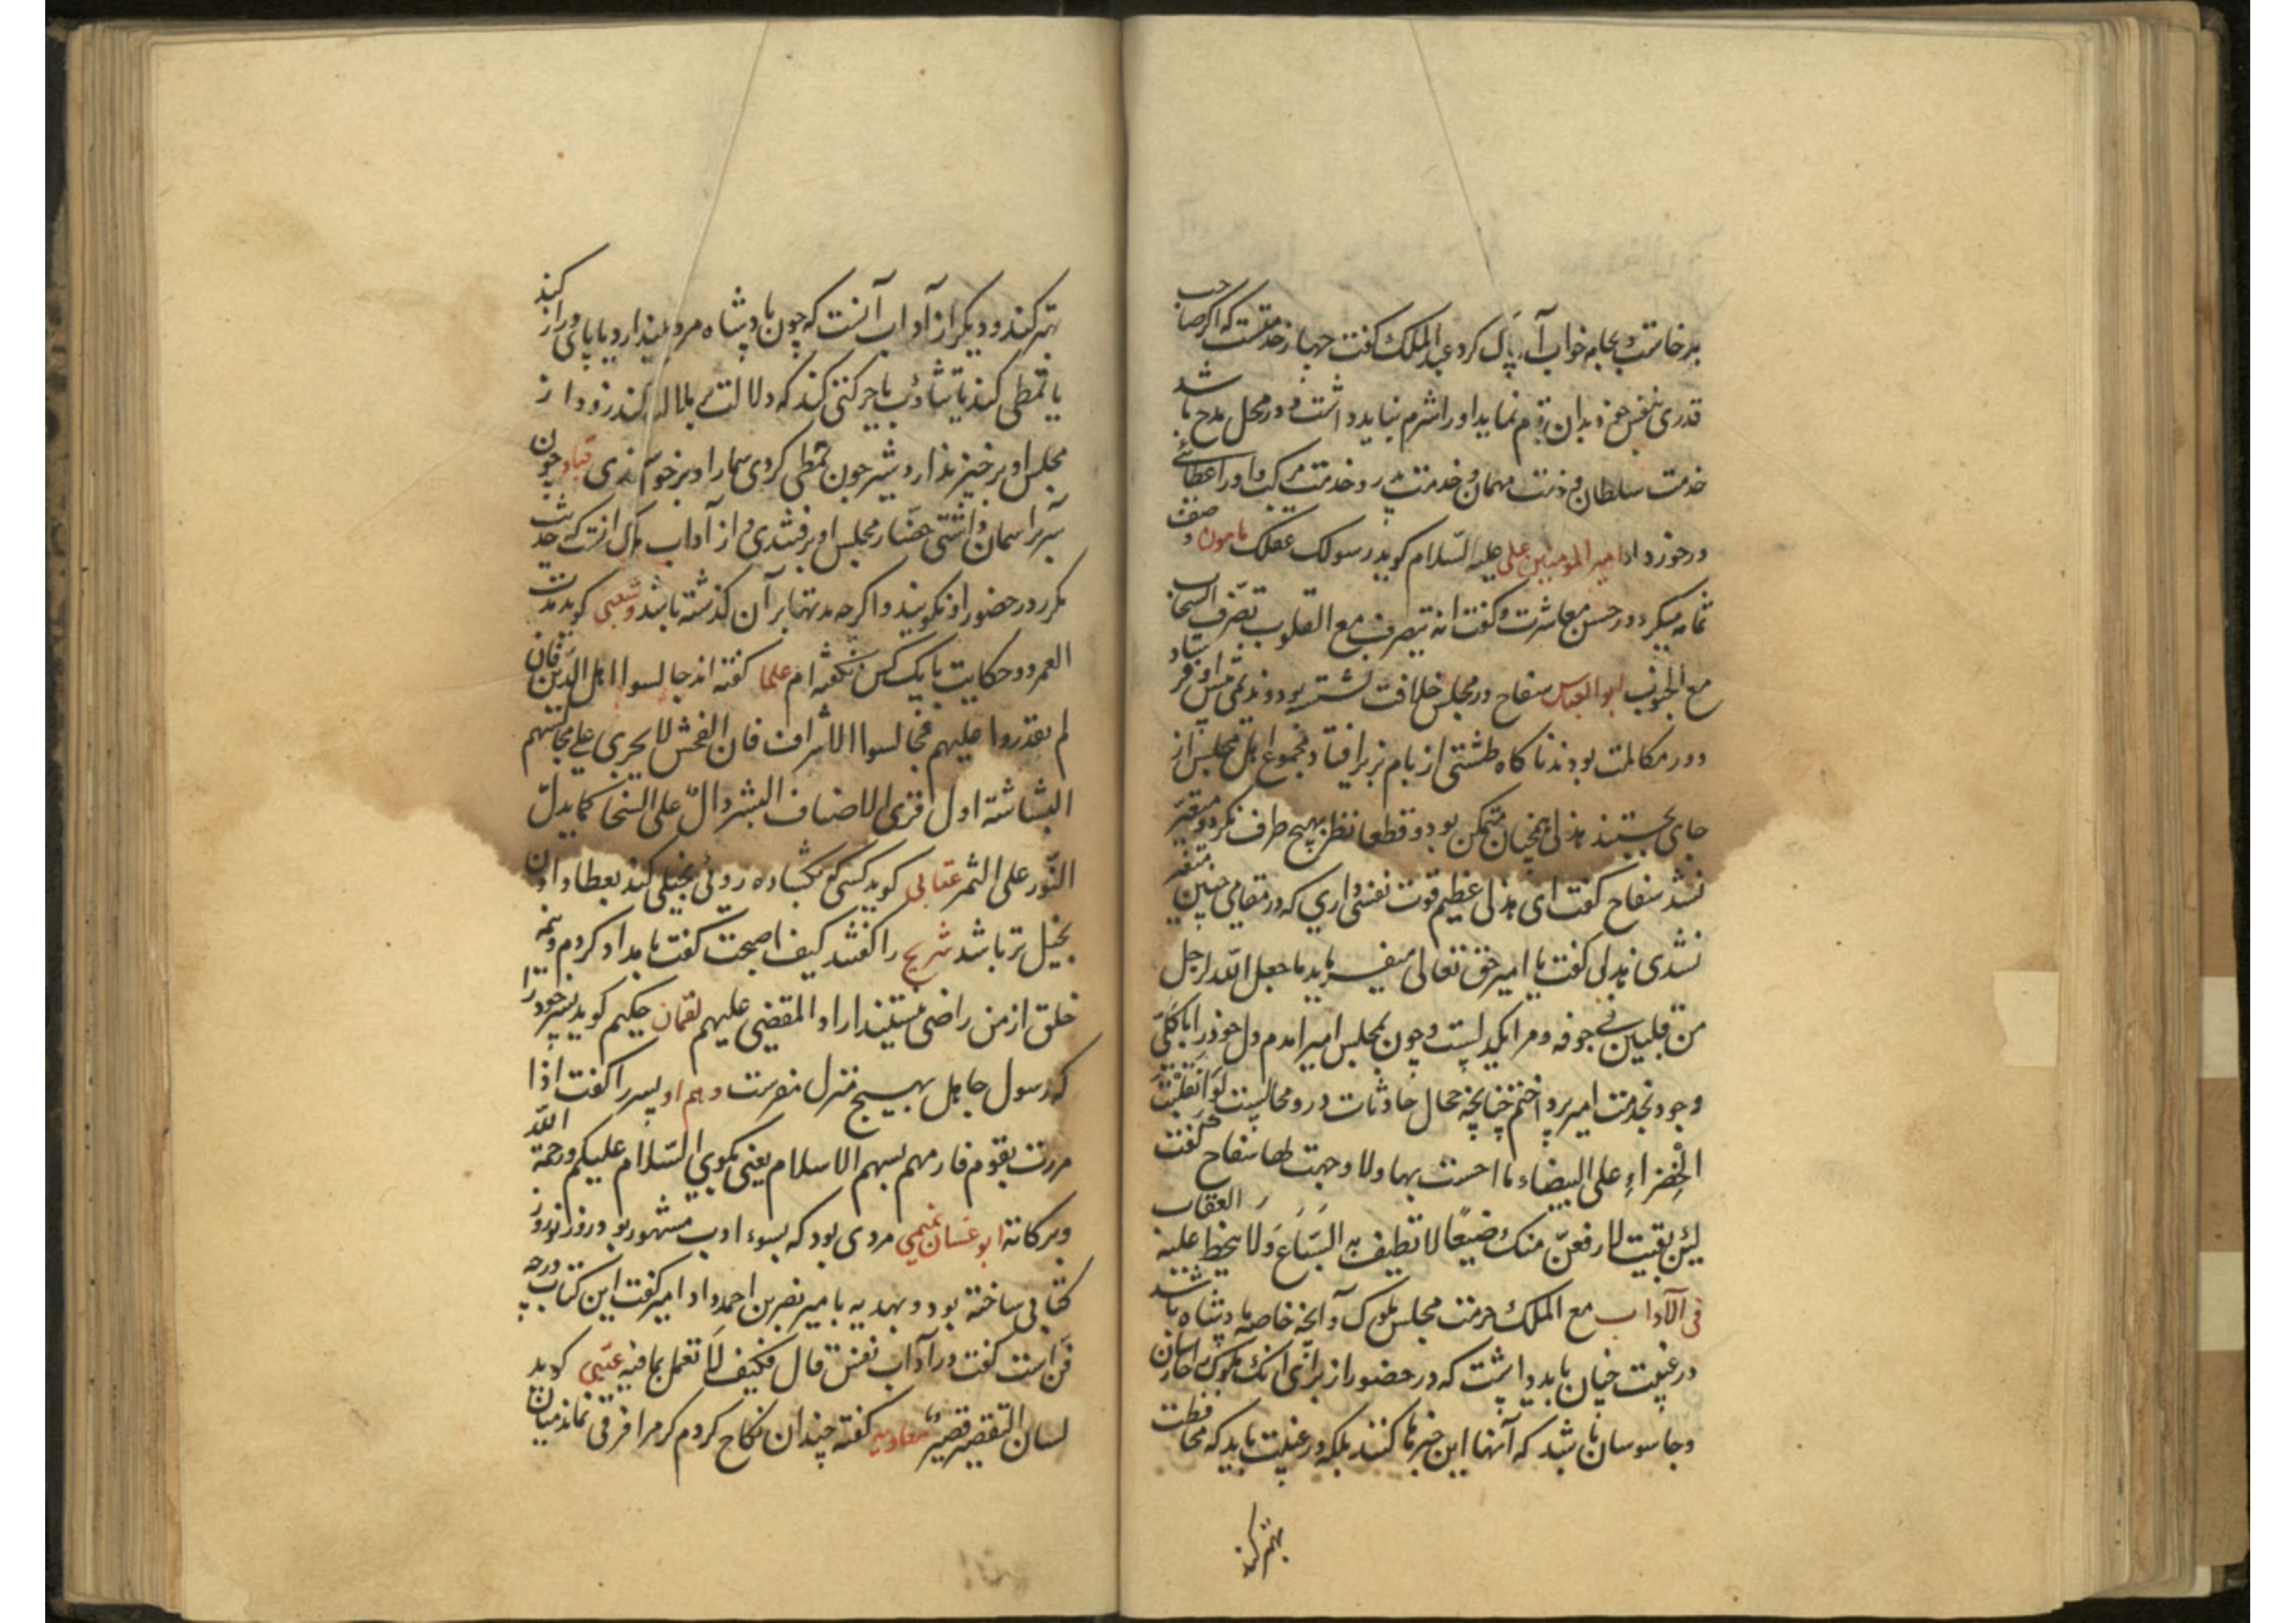 برخاست و بجامه خواب آن پاک کرد عبدالملک گفت چهار خدمتست که اگر صاحب
قدری بنفس خود بدان قیام نماید او را شرم نباید داشت و در محل مدح باشد
خدمت سلطان و خدمت مهمان و خدمت پدر و خدمت مرکب و او را عطائی
درخور داد امیر المومنین علی علیه السلام کوید رسولک عقلک مامون وصف
ثمامه میکرد در حسن معاشرت و کفت انه یتصرف مع القلوب تصرف السحاب
مع الجنوب ابو العباس سفاح در مجلس خلافت نشسته بود و هذلی پیش او فرستاد
و در مکالمت بودند ناکاه طشتی از بام بزیر افتاد مجموع اهل مجلس از
جای بجستند هذلی همچنان متمکن بود و قطعا نظر بهیچ طرف نکرد و متغیر
نشد سفاح کفت ای هذلی عظیم قوت نفسی داری که در مقامی چنین متغیر
نشدی هذلی کفت یا امیر حق تعالی میفرماید ما جعل الله لرجل
من قلبین فی جوفه و مرا یکدلیست و چون بمجلس امیر امدم دل خود را بکلی
و جود بخدمت امیر پرداختم چنانچه مجال حادثات درو محالیست لو انقلبت
الخضراء علی البیضاء ما احسست بها ولا وجهت لها سفاح کفت
لئن بقیت لارفعن منک وضیعا لا تطیف به السباع ولا ینحط علیه العقاب
فی الآداب مع الملک حرمت مجلس ملوک و آنچه خاصه پادشاه باشد
در غیبت چنان باید داشت که در حضور از برای انک ملوک را حارسان
و جاسوسان باشد که آنها این خبرها کنند بلکه در غیبت باید که محافظت
بهتر کند
بهتر کند و دیکر از آداب آنست که چون پادشاه مروحه بیندازد یا پای دراز کند
یا تمطی کند یا تثاؤب یا حرکتی کند که دلالت بملالت کند زود از
مجلس او برخیزند اردشیر چون تمطی کردی سمار او برخاستندی قباد چون
سر بر اسمان داشتی حضار مجلس او برفتندی و از آداب ملوک انست که حدیث
مکرر در حضور او نکویند و اکرچه مدتها بر آن کذشته باشد و شعبی کوید مدت
العمر دو حکایت با یک کس نکفته ام علما کفته اند جالسوا اهل الدین فان
لم تقدروا علیهم فجالسوا الاشراف فان الفحش لا یجری علی مجالسهم
البشاشة اول قری الاضیاف البشر دال علی السخا کما یدل
النور علی الثمر عتابی کوید کسی که بکشاده روئی بخیلی کند بعطا دادن
بخیل تر باشد شریح را کفتند کیف اصبحت کفت بامداد کردم و نیمه
خلق از من راضی نیستند اراد المقضی علیهم لقمان حکیم کوید پسر خود را
که رسول جاهل بهیچ منزل مفرست و هم او پسر را کفت اذا
مررت بقوم فارمهم بسهم الاسلام یعنی بکوی السلام علیکم ورحمة الله
وبرکاته ابو غسان تمیمی مردی بود که بسوء ادب مشهور بود در روز نوروز
کتابی ساخته بود و بهدیه با میر نصر بن احمد داد امیر کفت این کتاب در چه
فن است کفت در آداب نفس قال فکیف لا تعمل بما فیه عتبی کوید
لسان التقصیر قصیر معاویه کفته چندان نکاح کردم که مرا فرقی نماند میان